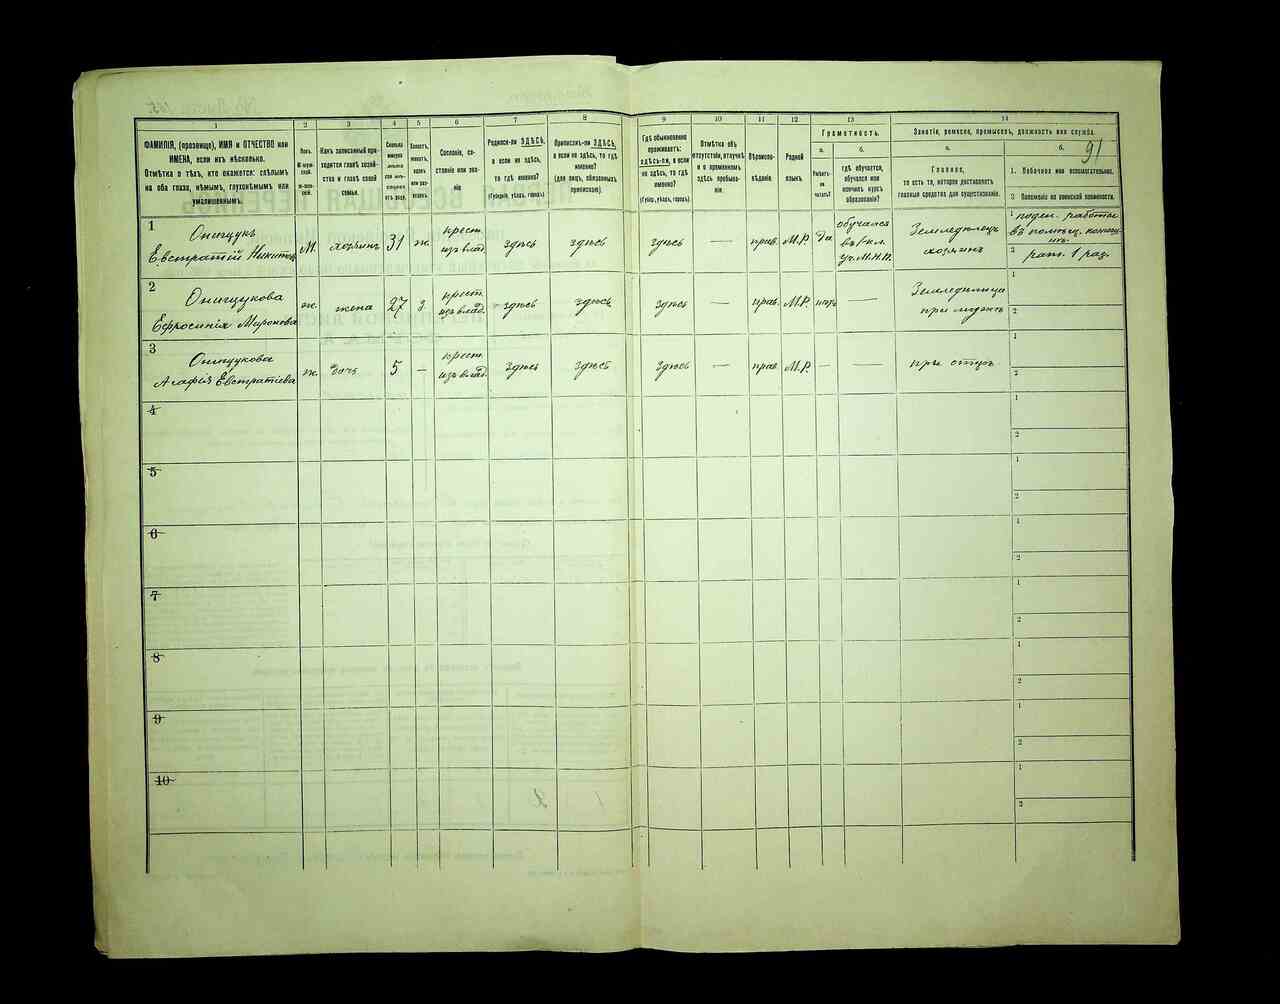 91
1
2
3
4
5
6
7
8
9
10
11
12
13
14
ФАМИЛІЯ, (прозвище), ИМЯ и ОТЧЕСТВО или
ИМЕНА, если ихъ нѣсколько.
Отмѣтка о тѣхъ, кто окажется: слѣпымъ
на оба глаза, нѣмымъ, глухонѣмымъ или
умалишеннымъ.
Полъ.
Какъ записанный при-
ходится главѣ хозяй-
ства и главѣ своей
семьи.
Сколько
минуло
Холостъ,
женатъ,
вдовъ
Сословіе, со-
стояніе или зва-
ніе
Родился-ли ЗДѢСЬ,
а если не здѣсь,
то гдѣ именно?
(Губернія, уѣздъ, городъ).
Приписанъ-ли ЗДѢСЬ,
а если не здѣсь, то гдѣ
именно?
(для лицъ, обязанныхъ
припискою).
Гдѣ обыкновенно
проживаетъ:
здѣсь-ли, а если
не здѣсь, то гдѣ
именно?
(Губер., уѣздъ, городъ).
Отмѣтка объ
отсутствіи, отлучкѣ
и о временномъ
здѣсь пребыва-
ніи.
Вѣроиспо-
вѣданіе.
Родной
языкъ.
Грамотность.
а.
Умѣетъ-
ли
читать?
б.
гдѣ обучается,
обучался или
кончилъ курсъ
образованія?
Занятіе, ремесло, промыселъ, должность или служба.
а.
Главное,
то есть то, которое доставляетъ
главныя средства для существованія.
б.
1. Побочное или вспомогательное.
2. Положеніе по воинской повинности.
1
Онищукъ
Евстратій Никитовъ
м.
хозяинъ
31
ж.
крест.
изъ влад.
здѣсь
здѣсь
здѣсь
—
прав.
М.Р.
да
обучался
въ 1-кл.
уч. М.Н.П.
Земледѣлецъ
хозяинъ
1 поден. работы
2
1 раз.
2
Онищукова
Ефросинія Миронова
ж.
жена
27
з
крест.
изъ влад.
здѣсь
здѣсь
здѣсь
—
прав.
М.Р.
нѣтъ
—
Земледѣлица
при мужѣ
1
2
3
Онищукова
Агафія Евстратіева
ж.
дочь
5
—
крест.
изъ влад.
здѣсь
здѣсь
здѣсь
—
прав.
М.Р.
—
—
при отцѣ
1
2
4
1
2
5
1
2
6
1
2
7
1
2
8
1
2
9
1
2
10
1
2